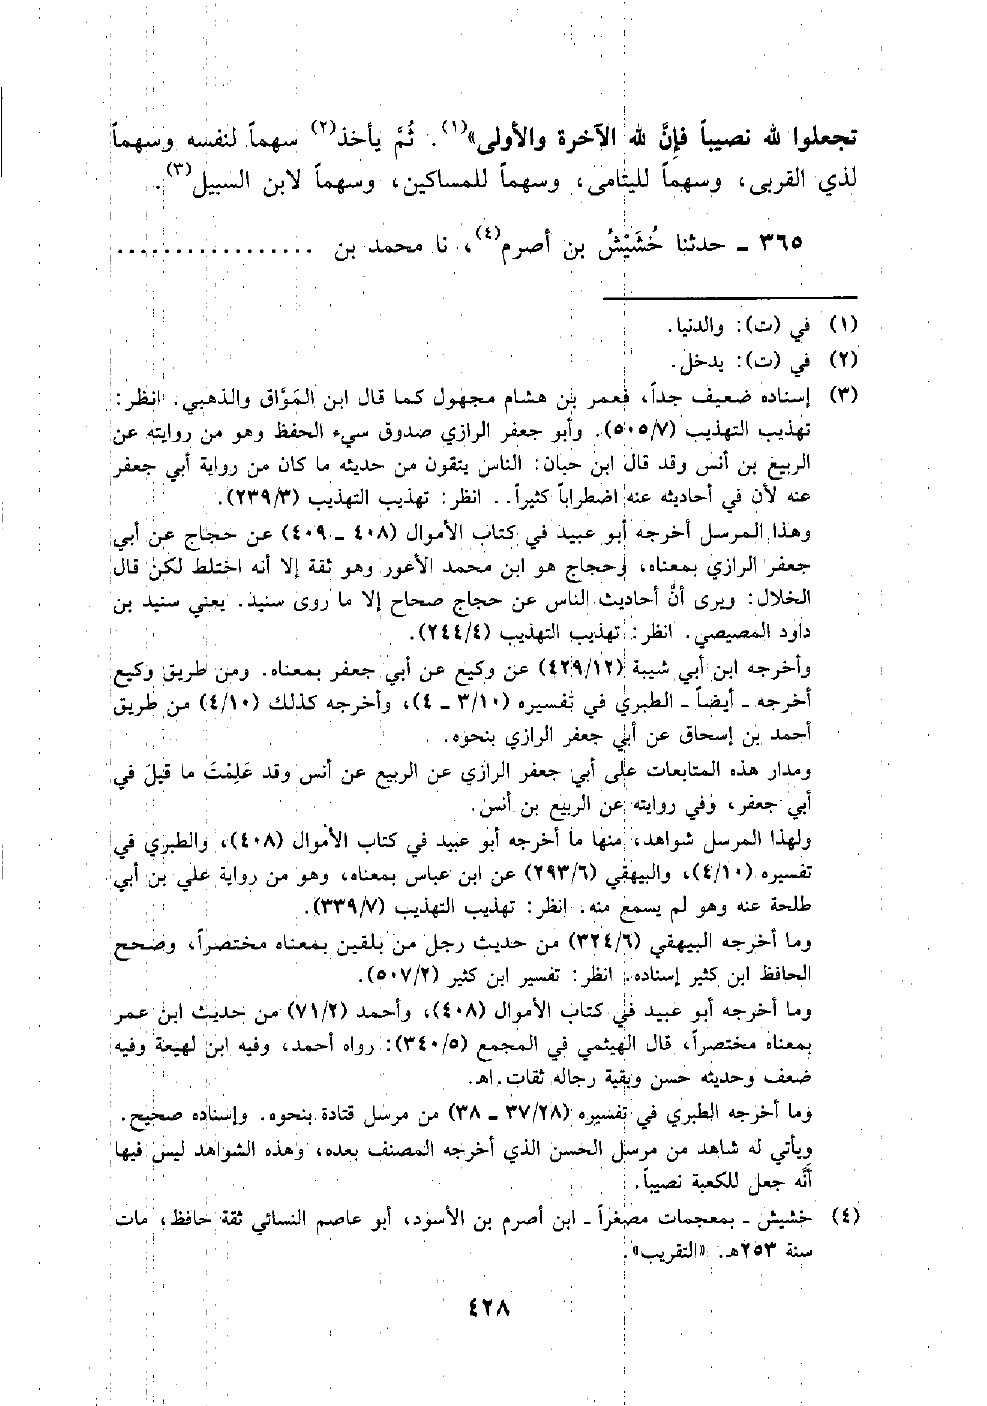 تجعلوا لله نصيباً فإنَّ لله الآخرة والأولى»(١). ثُمَّ يأخذ(٢) سهماً لنفسه وسهماً
لذي القربى، وسهماً لليتامى، وسهماً للمساكين، وسهماً لابن السبيل(٣).
٣٦٥ ـ حدثنا خُشَيْشُ بن أصرم(٤)، نا محمد بن .................
(١) في (ت): والدنيا.
(٢) في (ت): يدخل.
(٣) إسناده ضعيف جداً، فعمر بن هشام مجهول كما قال ابن المَوَّاق والذهبي. انظر:
تهذيب التهذيب (٥٠٥/٧). وأبو جعفر الرازي صدوق سيء الحفظ وهو من روايته عن
الربيع بن أنس وقد قال ابن حبان: الناس يتقون من حديثه ما كان من رواية أبي جعفر
عنه لأن في أحاديثه عنه اضطراباً كثيراً.. انظر: تهذيب التهذيب (٢٣٩/٣).
وهذا المرسل أخرجه أبو عبيد في كتاب الأموال (٤٠٨ ـ ٤٠٩) عن حجاج عن أبي
جعفر الرازي بمعناه، وحجاج هو ابن محمد الأعور وهو ثقة إلا أنه اختلط لكن قال
الخلال: ويرى أنَّ أحاديث الناس عن حجاج صحاح إلا ما روى سنيد. يعني سنيد بن
داود المصيصي. انظر: تهذيب التهذيب (٢٤٤/٤).
وأخرجه ابن أبي شيبة (٤٢٩/١٢) عن وكيع عن أبي جعفر بمعناه. ومن طريق وكيع
أخرجه ـ أيضاً ـ الطبري في تفسيره (٣/١٠ ـ ٤)، وأخرجه كذلك (٤/١٠) من طريق
أحمد بن إسحاق عن أبي جعفر الرازي بنحوه.
ومدار هذه المتابعات على أبي جعفر الرازي عن الربيع عن أنس وقد عَلِمْتَ ما قيلَ في
أبي جعفر، وفي روايته عن الربيع بن أنس.
ولهذا المرسل شواهد، منها ما أخرجه أبو عبيد في كتاب الأموال (٤٠٨)، والطبري في
تفسيره (٤/١٠)، والبيهقي (٢٩٣/٦) عن ابن عباس بمعناه، وهو من رواية علي بن أبي
طلحة عنه وهو لم يسمع منه. انظر: تهذيب التهذيب (٣٣٩/٧).
وما أخرجه البيهقي (٣٢٤/٦) من حديث رجل من بلقين بمعناه مختصراً، وصحح
الحافظ ابن كثير إسناده. انظر: تفسير ابن كثير (٥٠٧/٢).
وما أخرجه أبو عبيد في كتاب الأموال (٤٠٨)، وأحمد (٧١/٢) من حديث ابن عمر
بمعناه مختصراً، قال الهيثمي في المجمع (٣٤٠/٥): رواه أحمد، وفيه ابن لهيعة وفيه
ضعف وحديثه حسن وبقية رجاله ثقات.اهـ.
وما أخرجه الطبري في تفسيره (٣٧/٢٨ ـ ٣٨) من مرسل قتادة بنحوه. وإسناده صحيح.
ويأتي له شاهد من مرسل الحسن الذي أخرجه المصنف بعده، وهذه الشواهد ليس فيها
أنَّه جعل للكعبة نصيباً.
(٤) خشيش ـ بمعجمات مصغراً ـ ابن أصرم بن الأسود، أبو عاصم النسائي ثقة حافظ، مات
سنة ٢٥٣هـ. «التقريب».
٤٢٨